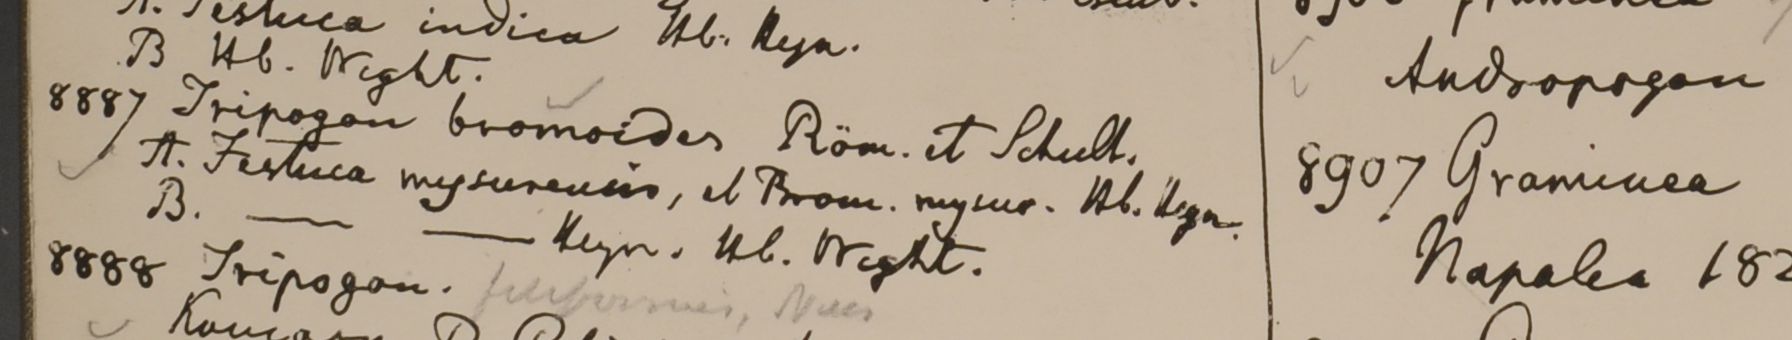 A. Festuca indica Hb. Heyn.
B Hb. Wight.
8887 Tripogon bromoides Röm. et Schult.
A. Festuca mysurensis, et Brom. mysur. Hb. Heyn.
B. —— —— Heyn. Hb. Wight.
8888 Tripogon. filiformis, Nees
Graminea
Andropogon
8907 Graminea
Napalea 182